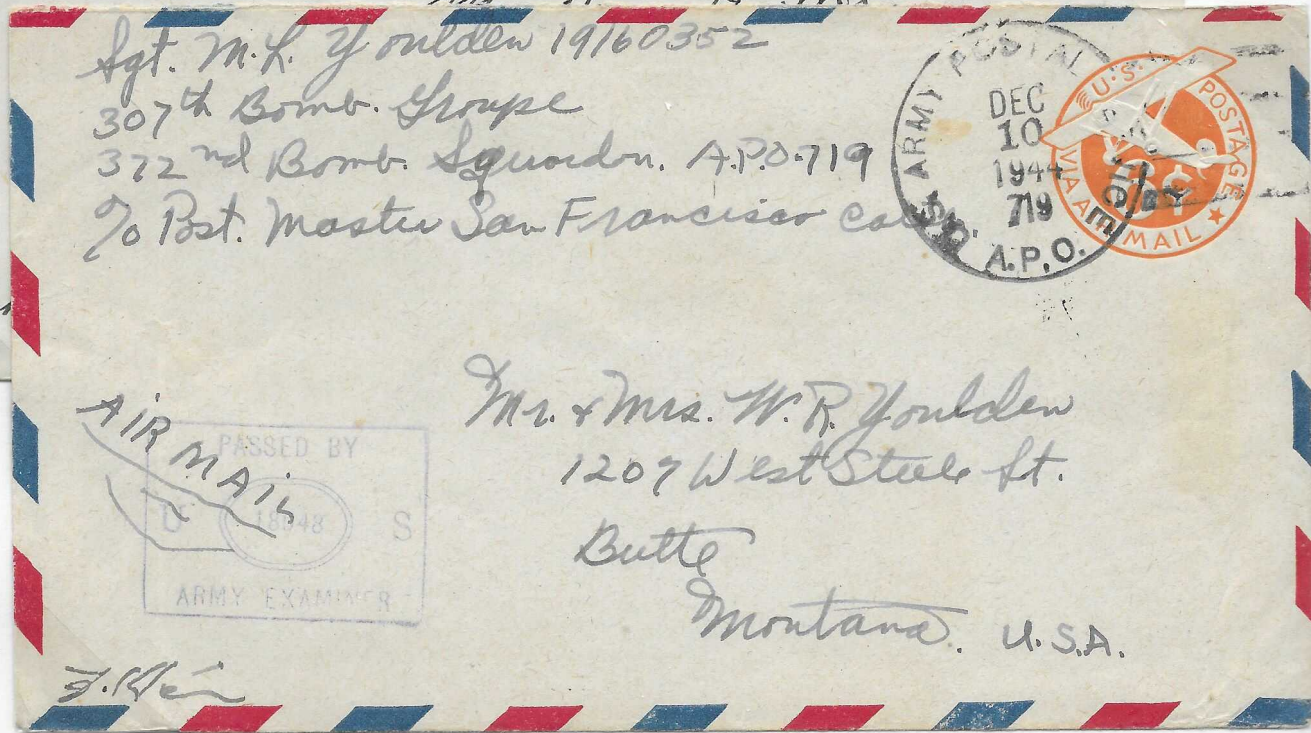 Sgt. M. L. Youlden 19160352
307th Bomb. Groupe
372nd Bomb. Squardon. A.P.O. 719
c/o Post. Master San Francisco Cal
ARMY POSTAL
DEC
10
1944
719
A.P.O.
U.S. POSTAGE
VIA AIR MAIL
6¢
Mr. & Mrs. W. R. Youlden
1207 West Steele St.
Butte
Montana. U.S.A.
AIR MAIL
PASSED BY
U S
ARMY EXAMINER